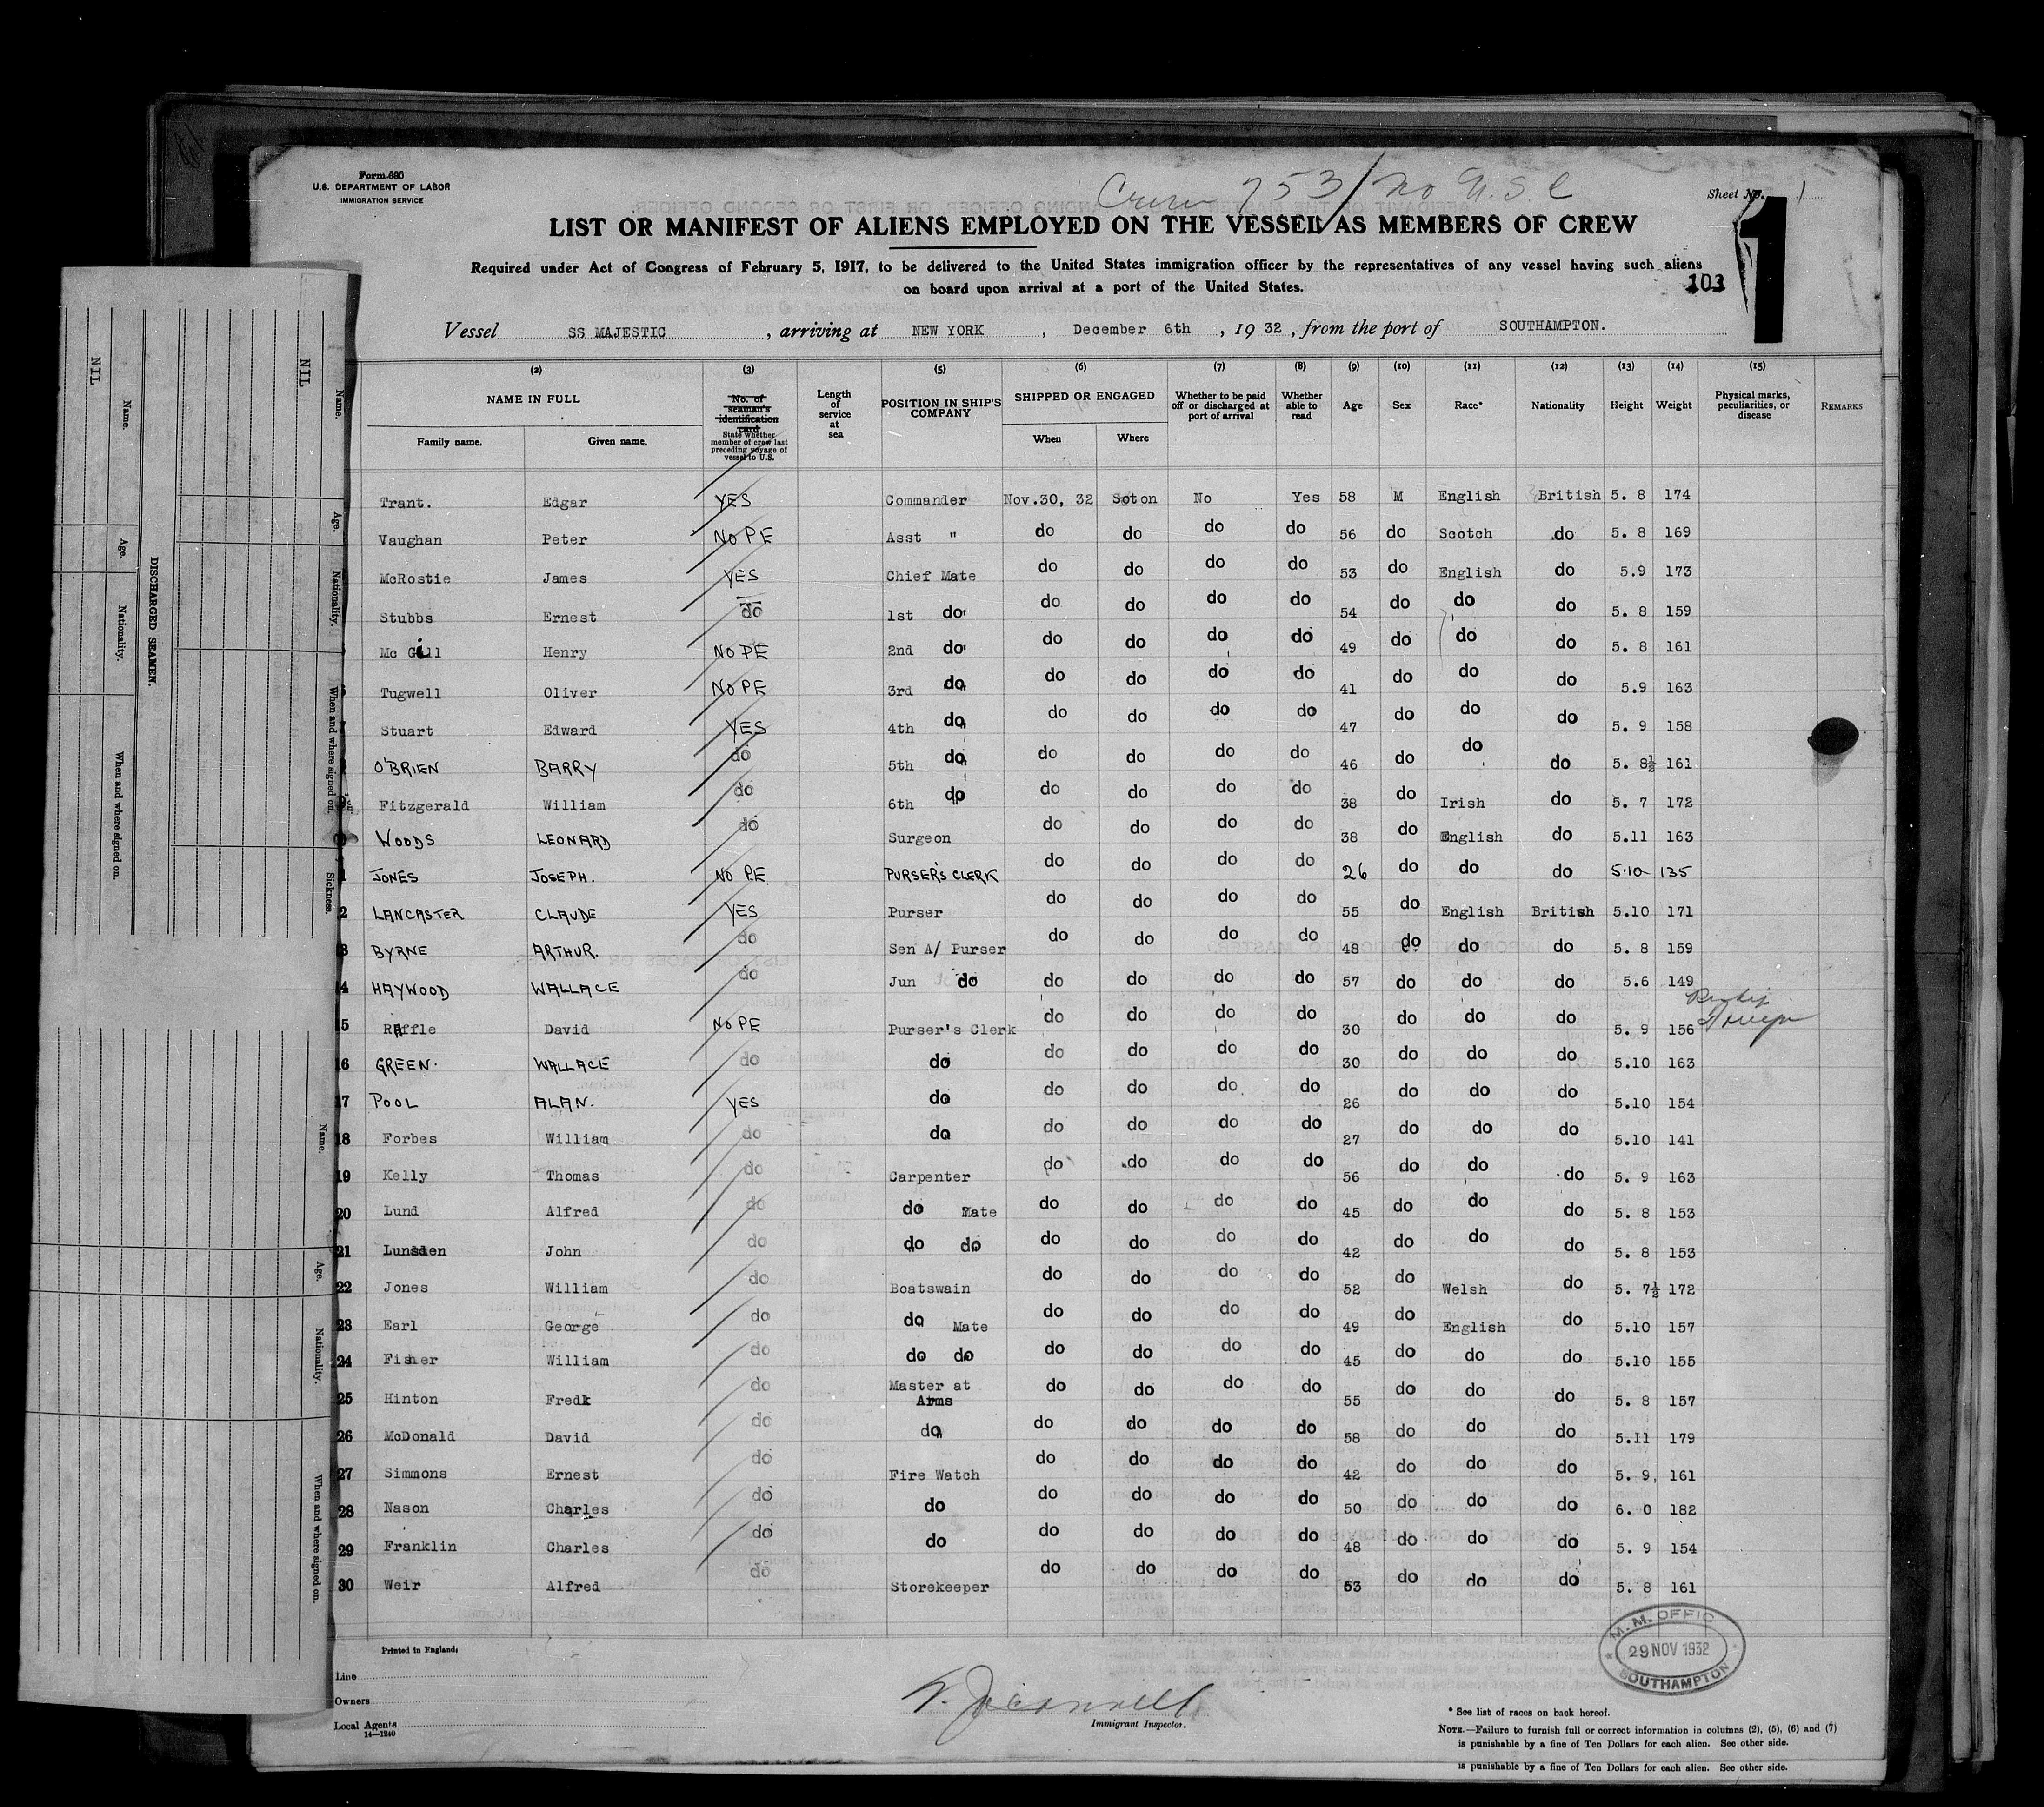 Form 680
U.S. DEPARTMENT OF LABOR
IMMIGRATION SERVICE
Crew 753 / no U.S.C
Sheet No. 1
1
LIST OR MANIFEST OF ALIENS EMPLOYED ON THE VESSEL AS MEMBERS OF CREW
Required under Act of Congress of February 5, 1917, to be delivered to the United States immigration officer by the representatives of any vessel having such aliens
on board upon arrival at a port of the United States.
103
Vessel SS MAJESTIC , arriving at NEW YORK , December 6th , 19 32 , from the port of SOUTHAMPTON.
(2) (3) (5) (6) (7) (8) (9) (10) (11) (12) (13) (14) (15)
NAME IN FULL
Family name. Given name.
No. of seaman's identification card
State whether member of crew last preceding voyage of vessel to U.S.
Length of service at sea
POSITION IN SHIP'S COMPANY
SHIPPED OR ENGAGED
When Where
Whether to be paid off or discharged at port of arrival
Whether able to read
Age Sex Race* Nationality Height Weight
Physical marks, peculiarities, or disease
REMARKS
Trant. Edgar YES Commander Nov.30, 32 Soton No Yes 58 M English British 5. 8 174
Vaughan Peter NO PE Asst " do do do do 56 do Scotch do 5. 8 169
McRostie James YES Chief Mate do do do do 53 do English do 5.9 173
Stubbs Ernest do 1st do do do do do 54 do do do 5. 8 159
Mc Gill Henry NO PE 2nd do do do do do 49 do do do 5. 8 161
6 Tugwell Oliver NO PE 3rd do do do do do 41 do do do 5.9 163
7 Stuart Edward YES 4th do do do do do 47 do do do 5. 9 158
O'BRIEN BARRY do 5th do do do do do 46 do do do 5. 8½ 161
9 Fitzgerald William do 6th do do do do do 38 do Irish do 5. 7 172
0 WOODS LEONARD do Surgeon do do do do 38 do English do 5.11 163
1 JONES JOSEPH. NO PE. PURSER'S CLERK do do do do 26 do do do 5.10- 135
2 LANCASTER CLAUDE YES Purser do do do do 55 do English British 5.10 171
3 BYRNE ARTHUR. do Sen A/ Purser do do do do 48 do do do 5. 8 159
4 HAYWOOD WALLACE do Jun do do do do do 57 do do do 5.6 149
5 RAffle David NO PE Purser's Clerk do do do do 30 do do do 5. 9 156
16 GREEN. WALLACE do do do do do do 30 do do do 5.10 163
17 POOL ALAN. YES do do do do do 26 do do do 5.10 154
18 Forbes William do do do do do do 27 do do do 5.10 141
19 Kelly Thomas do Carpenter do do do do 56 do do do 5. 9 163
20 Lund Alfred do do Mate do do do do 45 do do do 5. 8 153
21 John do do do do do do do 42 do do do 5. 8 153
22 Jones William do Boatswain do do do do 52 do Welsh do 5. 7½ 172
23 Earl George do do Mate do do do do 49 do English do 5.10 157
24 Fisher William do do do do do do do 45 do do do 5.10 155
25 Hinton Fredk do Master at Arms do do do do 55 do do do 5. 8 157
26 McDonald David do do do do do do 58 do do do 5.11 179
27 Simmons Ernest do Fire Watch do do do do 42 do do do 5. 9 161
28 Nason Charles do do do do do do 50 do do do 6. 0 182
29 Franklin Charles do do do do do do 48 do do do 5. 9 154
30 Weir Alfred do Storekeeper do do do do 53 do do do 5. 8 161
Printed in England:
Line
Owners
Local Agents
14—1240
Immigrant Inspector.
M. M. OFFIC
29 NOV 1932
SOUTHAMPTON
* See list of races on back hereof.
NOTE.—Failure to furnish full or correct information in columns (2), (5), (6) and (7)
is punishable by a fine of Ten Dollars for each alien. See other side.
is punishable by a fine of Ten Dollars for each alien. See other side.
DISCHARGED SEAMEN.
Name. Age. Nationality. When and where signed on.
NIL
Name. Age. Nationality. When and where signed on. Sickness.
NIL
Name. Age. Nationality. When and where signed on.